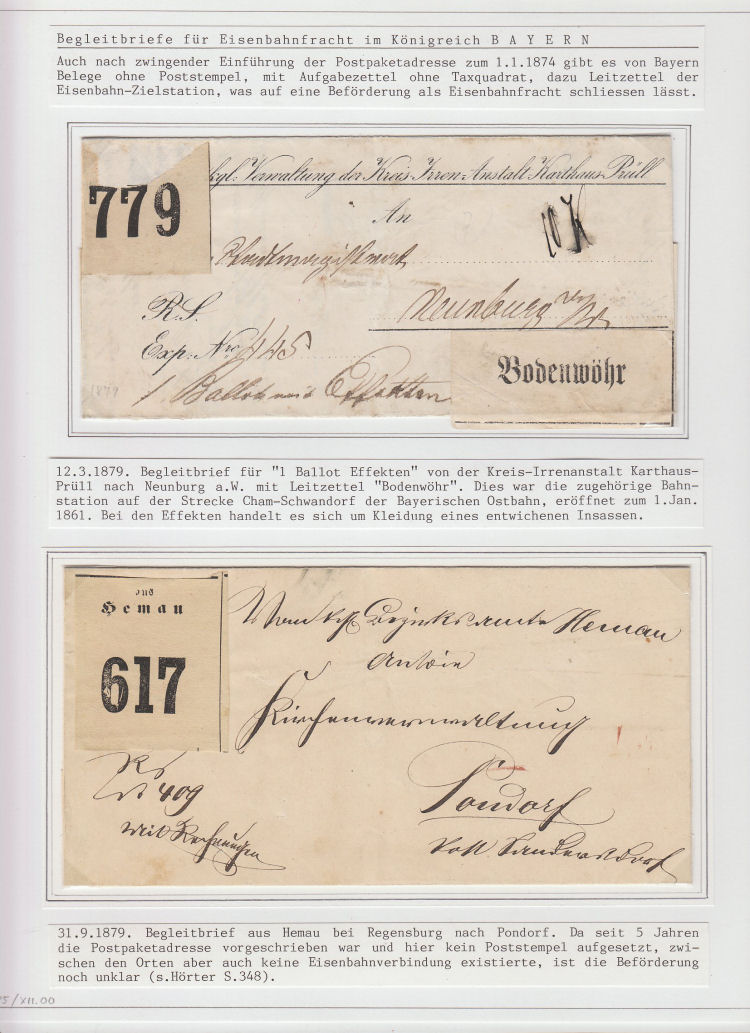 Begleitbriefe für Eisenbahnfracht im Königreich B A Y E R N
Auch nach zwingender Einführung der Postpaketadresse zum 1.1.1874 gibt es von Bayern
Belege ohne Poststempel, mit Aufgabezettel ohne Taxquadrat, dazu Leitzettel der
Eisenbahn-Zielstation, was auf eine Beförderung als Eisenbahnfracht schliessen lässt.
779
kgl. Verwaltung der Kreis-Irren-Anstalt Karthaus-Prüll
An
Neunburg
R.S.
Exp. Nro 445
1 Ballot mit Effekten
Bodenwöhr
1879
12.3.1879. Begleitbrief für "1 Ballot Effekten" von der Kreis-Irrenanstalt Karthaus-
Prüll nach Neunburg a.W. mit Leitzettel "Bodenwöhr". Dies war die zugehörige Bahn-
station auf der Strecke Cham-Schwandorf der Bayerischen Ostbahn, eröffnet zum 1.Jan.
1861. Bei den Effekten handelt es sich um Kleidung eines entwichenen Insassen.
aus
Hemau
617
Vom kgl. Bezirksamte Hemau
An die
Kirchenverwaltung
Pondorf
Post Sandersdorf
RS
No 409
mit Rechnungen
31.9.1879. Begleitbrief aus Hemau bei Regensburg nach Pondorf. Da seit 5 Jahren
die Postpaketadresse vorgeschrieben war und hier kein Poststempel aufgesetzt, zwi-
schen den Orten aber auch keine Eisenbahnverbindung existierte, ist die Beförderung
noch unklar (s.Hörter S.348).
5/XII.00